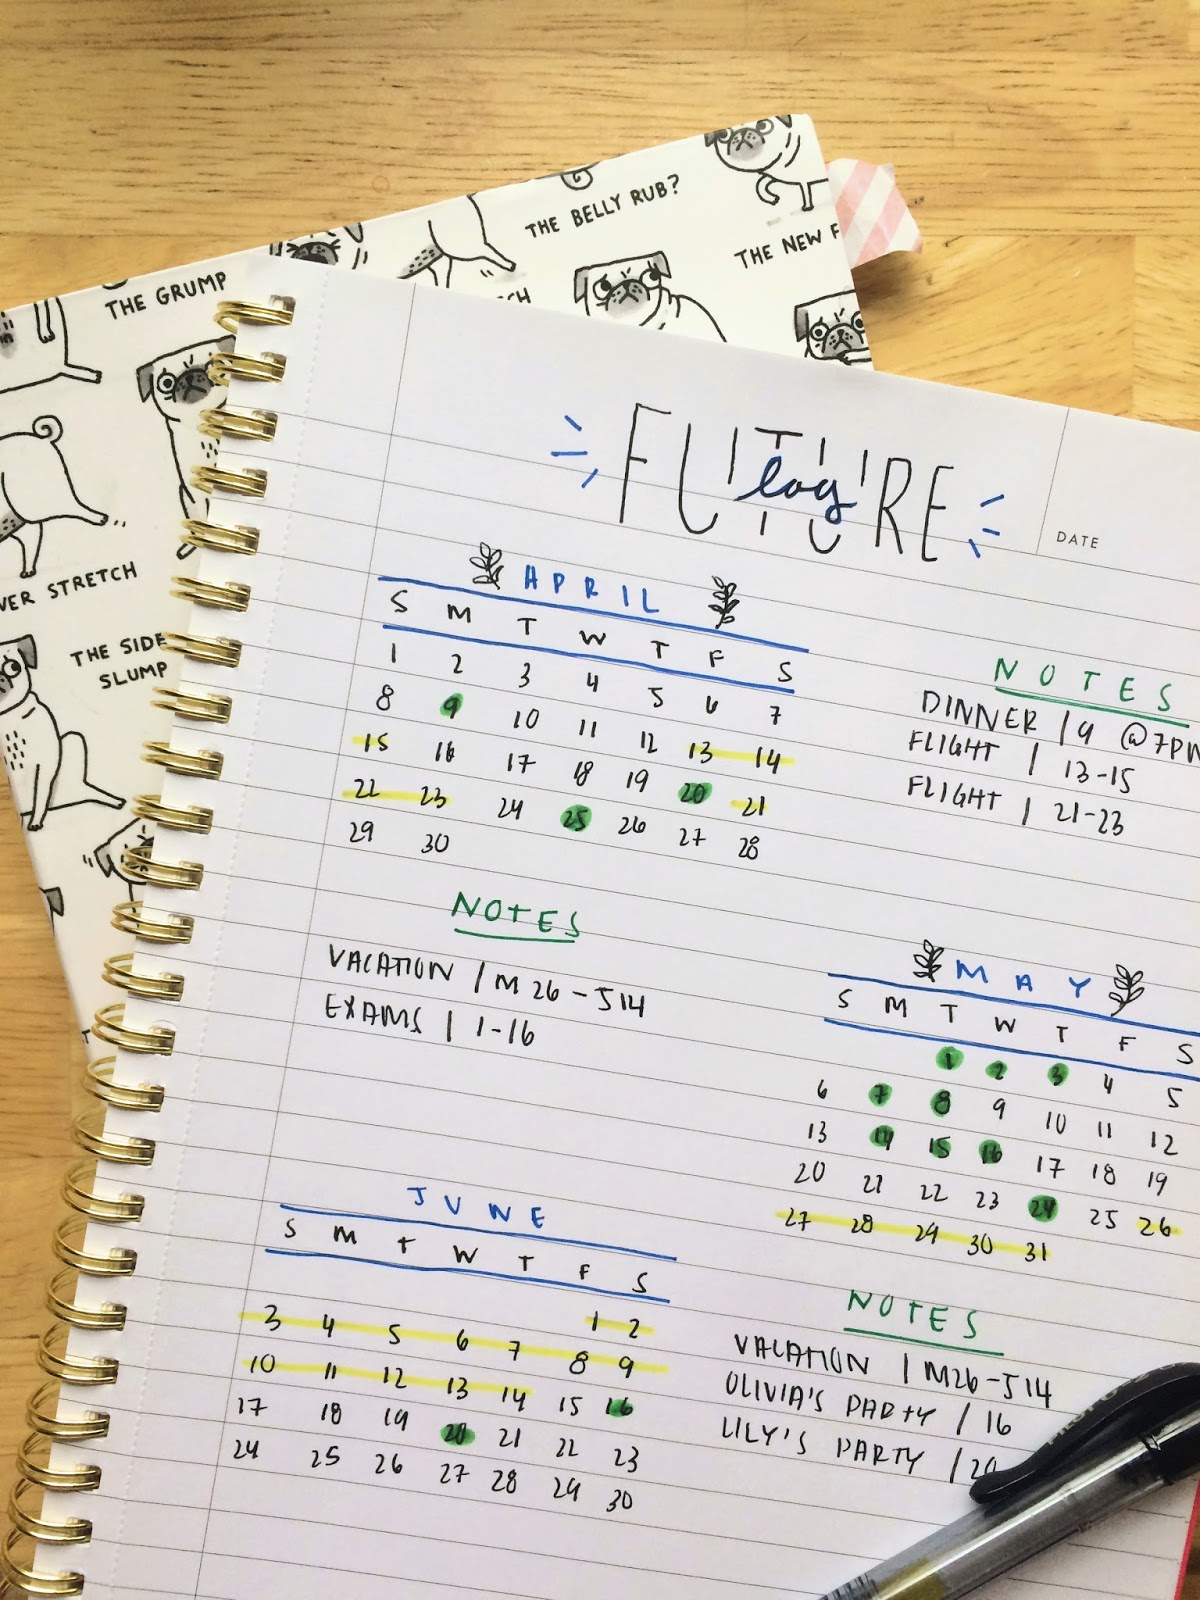 THE BELLY RUB?
THE NEW
THE GRUMP
STRETCH
THE SIDE
SLUMP
FUTURE
log
DATE
APRIL
S M T W T F S
1 2 3 4 5 6 7
8 9 10 11 12 13 14
15 16 17 18 19 20 21
22 23 24 25 26 27 28
29 30
NOTES
DINNER | 9 @7PM
FLIGHT | 13-15
FLIGHT | 21-23
NOTES
VACATION | M26-J14
EXAMS | 1-16
MAY
S M T W T F S
1 2 3 4 5
6 7 8 9 10 11 12
13 14 15 16 17 18 19
20 21 22 23 24 25 26
27 28 29 30 31
JUNE
S M T W T F S
1 2
3 4 5 6 7 8 9
10 11 12 13 14 15 16
17 18 19 20 21 22 23
24 25 26 27 28 29 30
NOTES
VACATION | M26-J14
OLIVIA'S PARTY | 16
LILY'S PARTY | 20